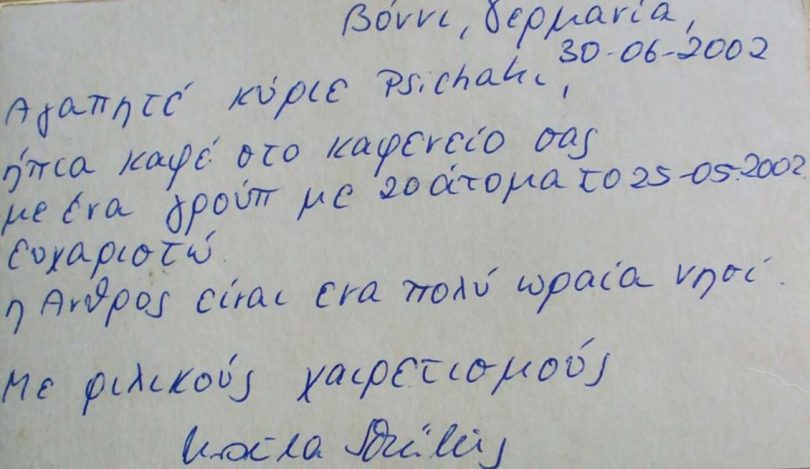 Βόννι, Γερμανία,
30-06-2002
Αγαπητέ κύριε Psichaki,
ήπια καφέ στο καφενείο σας
με ένα γρούπ με 20 άτομα το 25-05-2002
ευχαριστώ
η Ανθρος είναι ένα πολύ ωραία νησί.
Με φιλικούς χαιρετισμούς